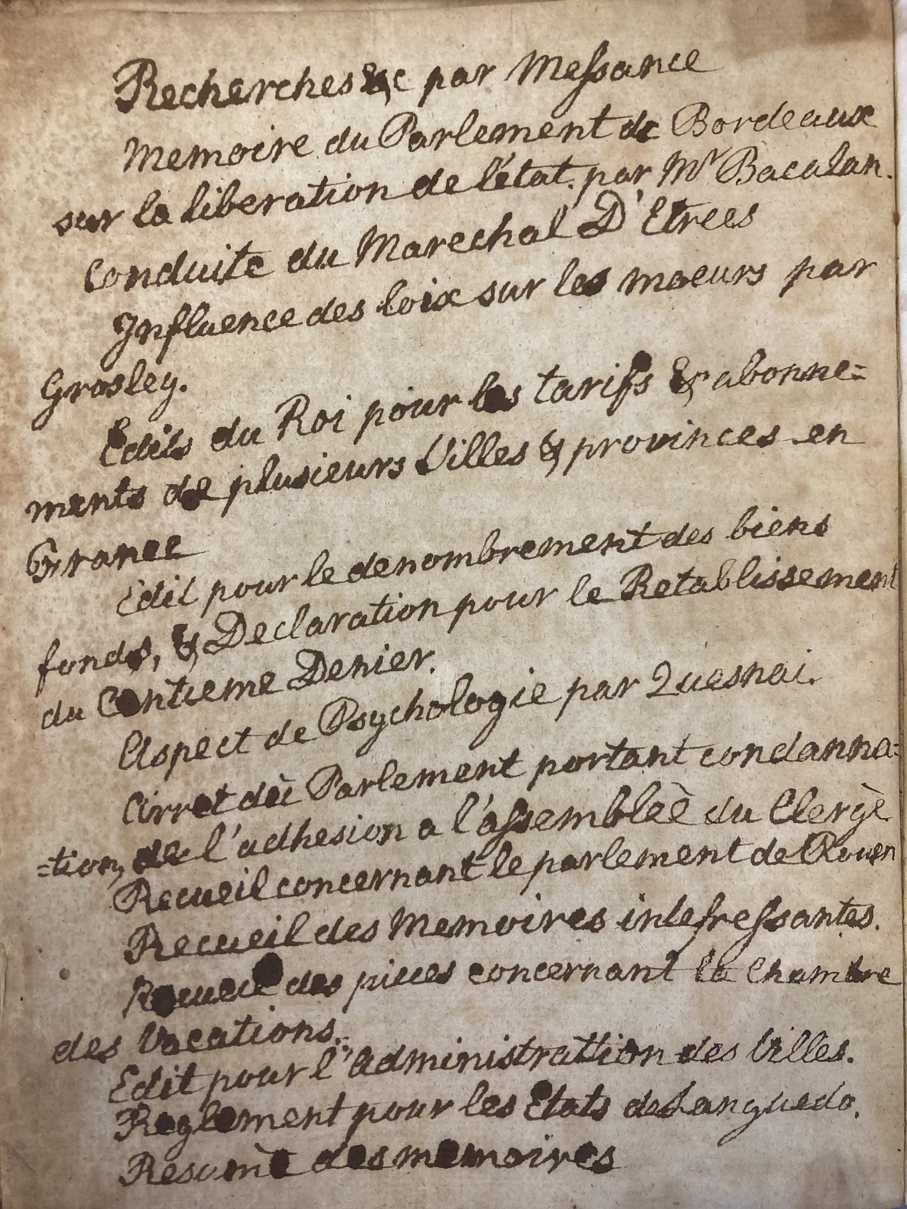 Recherches &c par Messance
Memoire du Parlement de Bordeaux
sur la liberation de l'état. par Mr Bacalan.
Conduite du Marechal D'Etrees
Influence des loix sur les moeurs par
Grosley.
Edits du Roi pour les tarifs & abonne=
ments de plusieurs Villes & provinces en
France
Edit pour le denombrement des biens
fonds, & Declaration pour le Retablissement
du Centieme Denier.
Aspect de Psychologie par Quesnai.
Arret du Parlement portant condanna=
=tion, de l'adhesion a l'assembleè du Clergè
Recueil concernant le parlement de Rouen
Recueil des Memoires interessantes.
Recueil des pieces concernant la Chambre
des Vacations.
Edit pour l'administrattion des Villes.
Reglement pour les Etats de Languedo.
Resumè des memoires